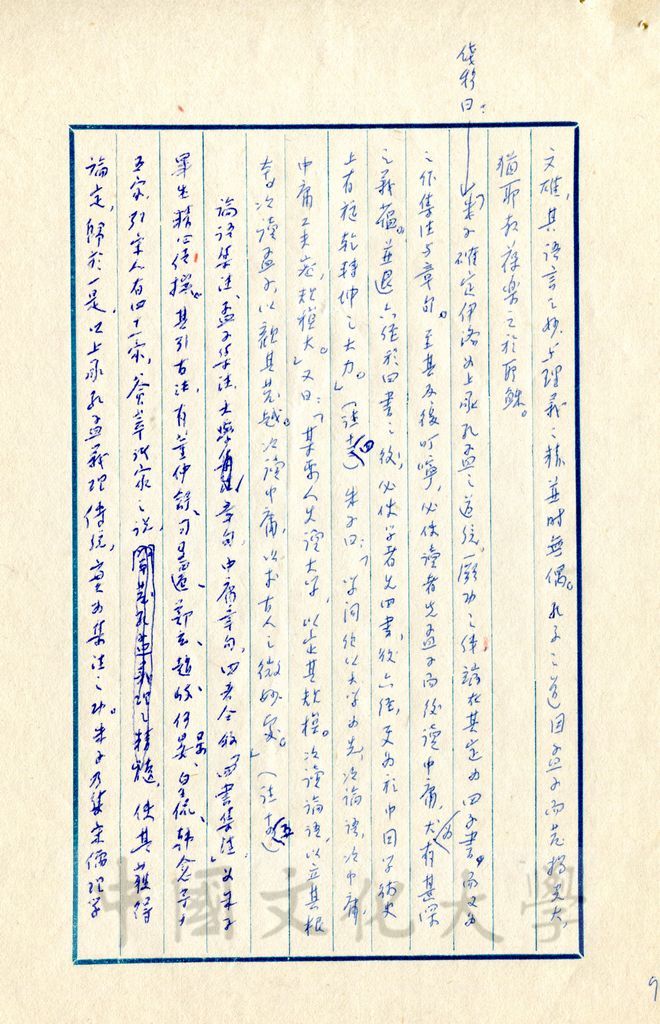 文雄,其語言之妙與理義之精並時無偶。孔子之道因孟子而益擴大,
猶耶教葆樂之於耶穌。
錢穆曰:「朱子確定伊洛為上承孔孟之道統,厥功之偉端在其定為四子書。而又為
之作集注與章句。至其反復叮嚀,必使讀者先孟子而後讀中庸,尤有甚深
之義蘊。並退六經於四書之後,必使學者先四書,後六經,更為於中國學術史
上有旋乾轉坤之大力。」(註十四)朱子曰:「學問須以大學為先,次論語,次中庸,
中庸工夫密,規模大。」又曰:「某要人先讀大學,以定其規模。次讀論語,以立其根
本,次讀孟子,以觀其發越。次讀中庸,以求古人之微妙處。」(註十五)
論語集注、孟子集注、大學章句、中庸章句,四者合稱「四書集注」,為朱子
畢生精心使撰。其引古注,有董仲舒、司馬遷、鄭玄、趙岐、何晏、皇侃、韓愈等十
五家,引宋人有四十一家,薈萃諸家之說,使其獲得
論定,歸於一是。以上承孔孟義理傳統,實為集注之功。朱子乃集宋儒理學
中國文化大學